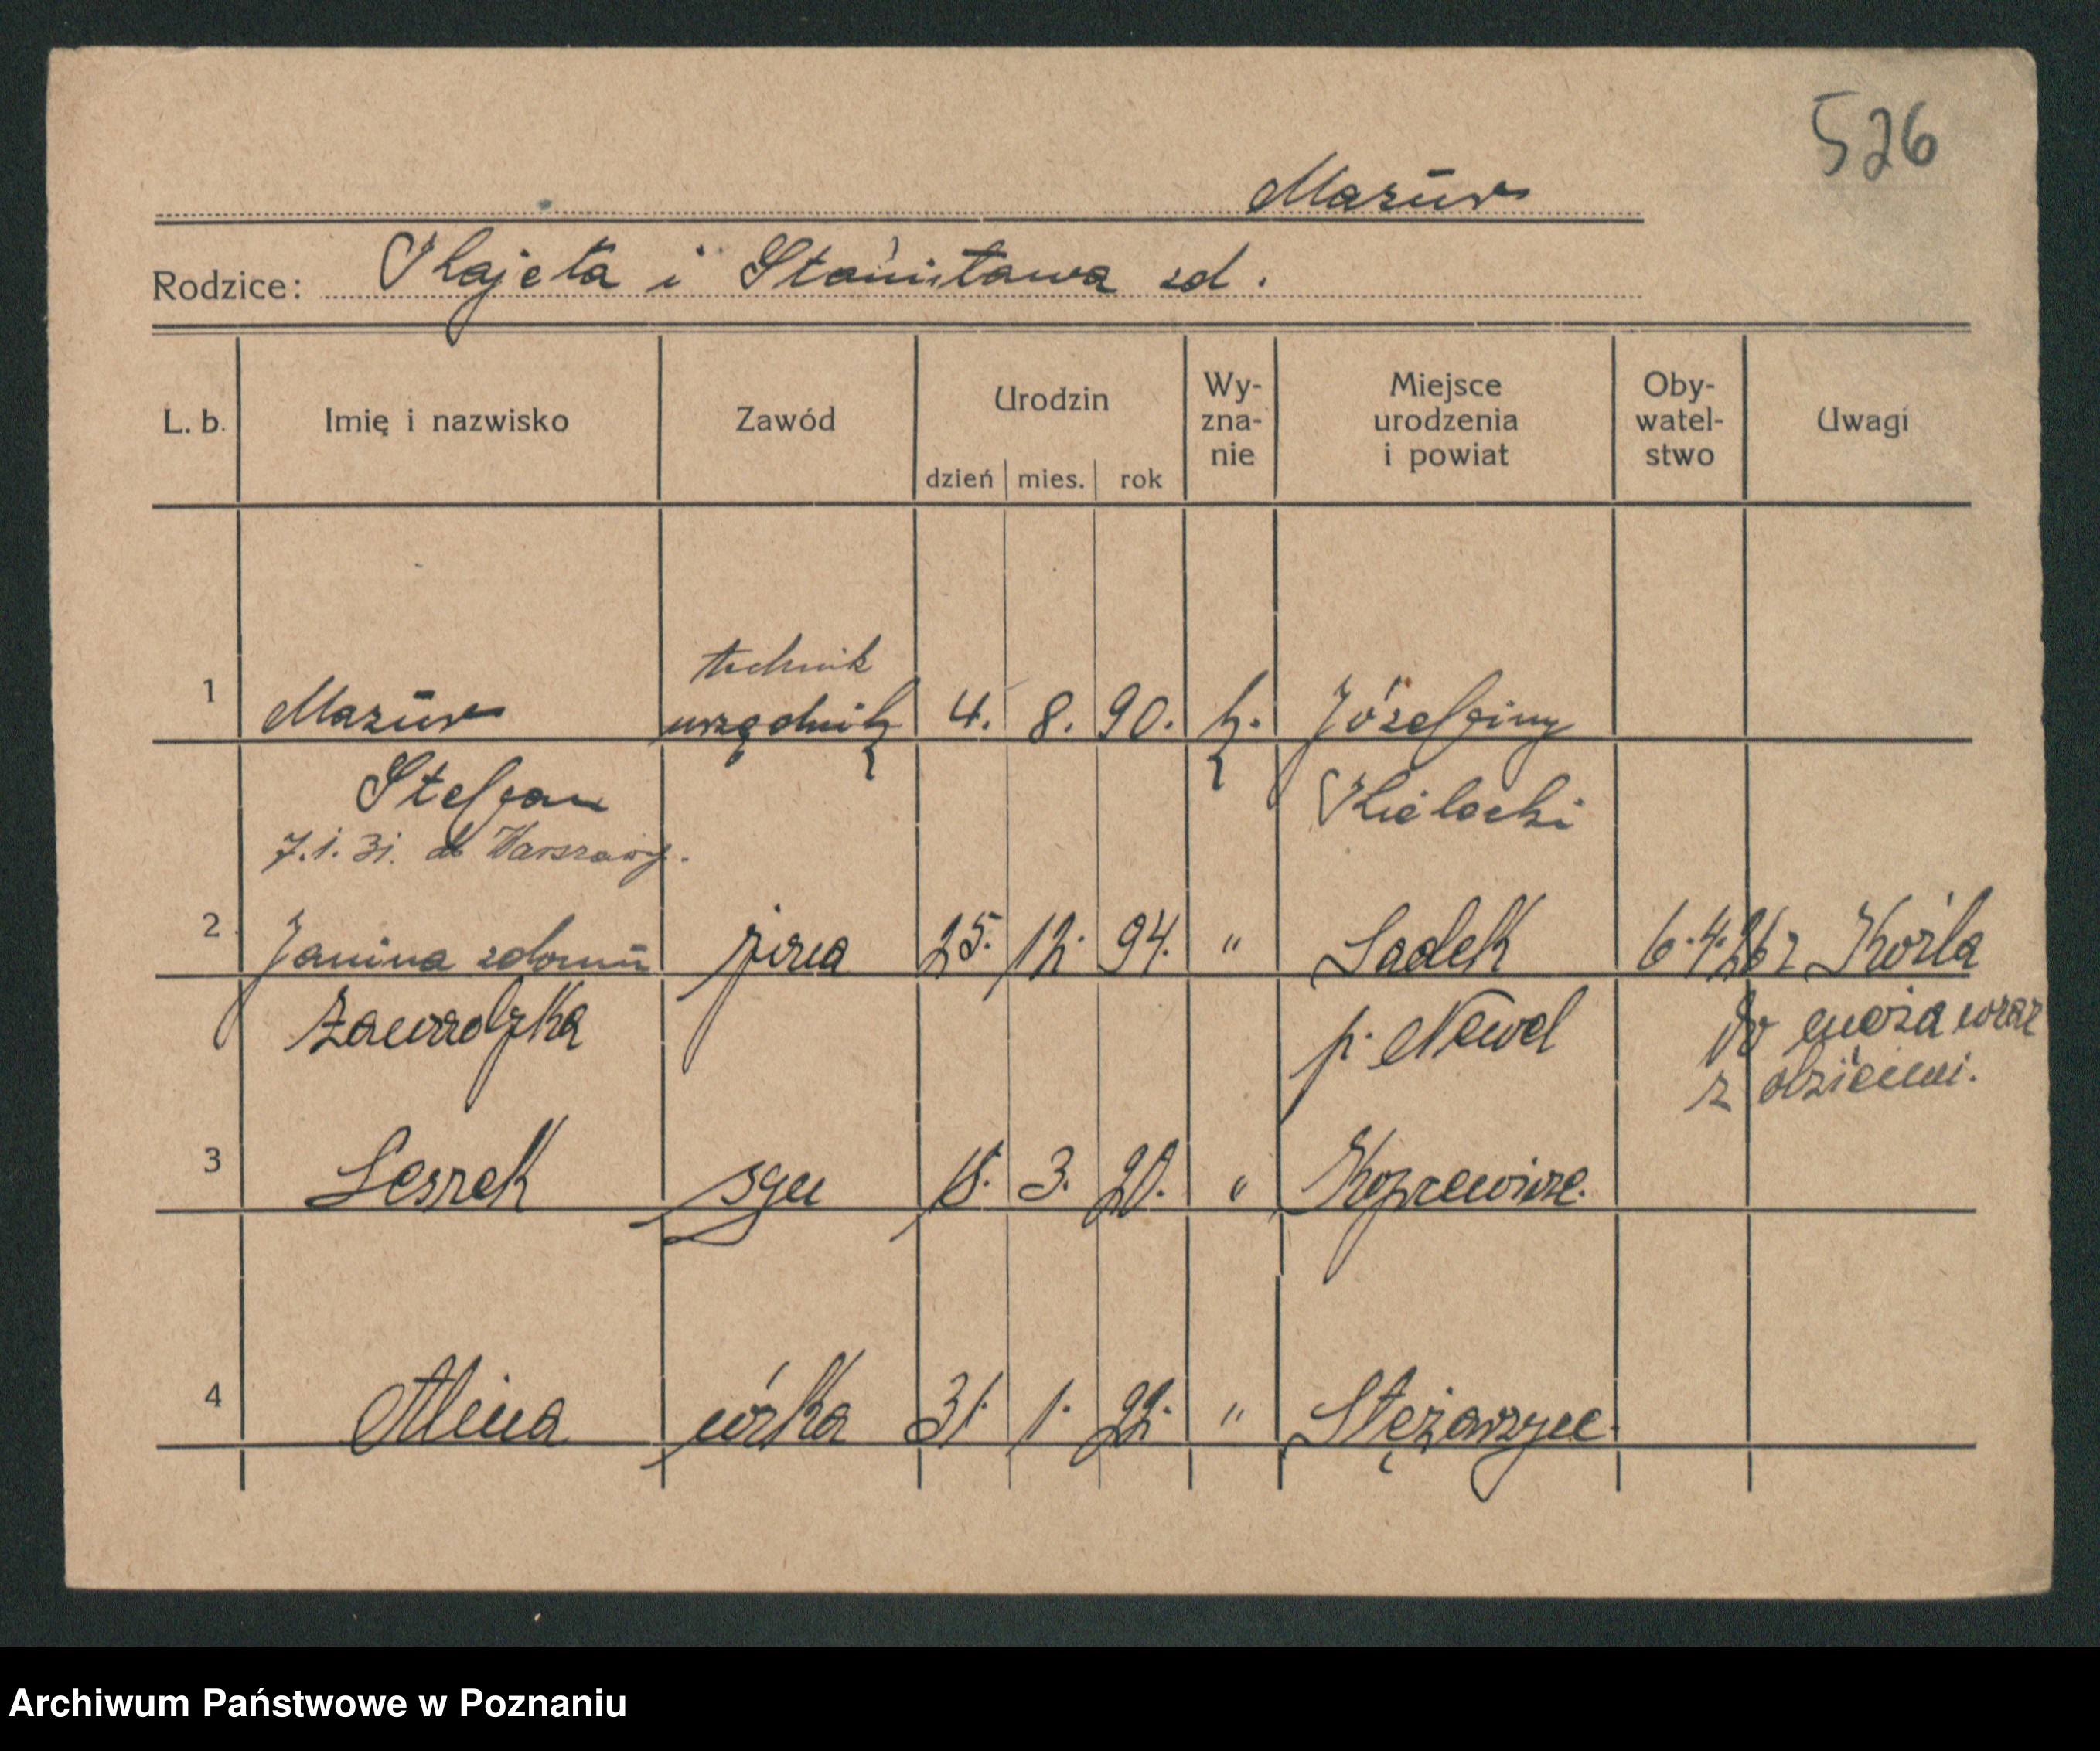 526
Mazur
Rodzice: Kajeta i Stanisława zd.
L. b. Imię i nazwisko Zawód Urodzin Wy- Miejsce Oby- Uwagi
zna- urodzenia watel-
nie i powiat stwo
dzień mies. rok
technik
1 Mazur urzędnik 4. 8. 90. k. Józefiny
Stefan Kielecki
7.1.31. do Warszawy.
2 Janina z domu żona 25. 12. 94. " Sadek 6.4.26 z Koźla
Zawadzka p. Newel do męża wraz
z dziećmi.
3 Leszek syn 15. 3. 20. "
4 Alina córka 31. 1. 22. " Stężarzyce.
Archiwum Państwowe w Poznaniu